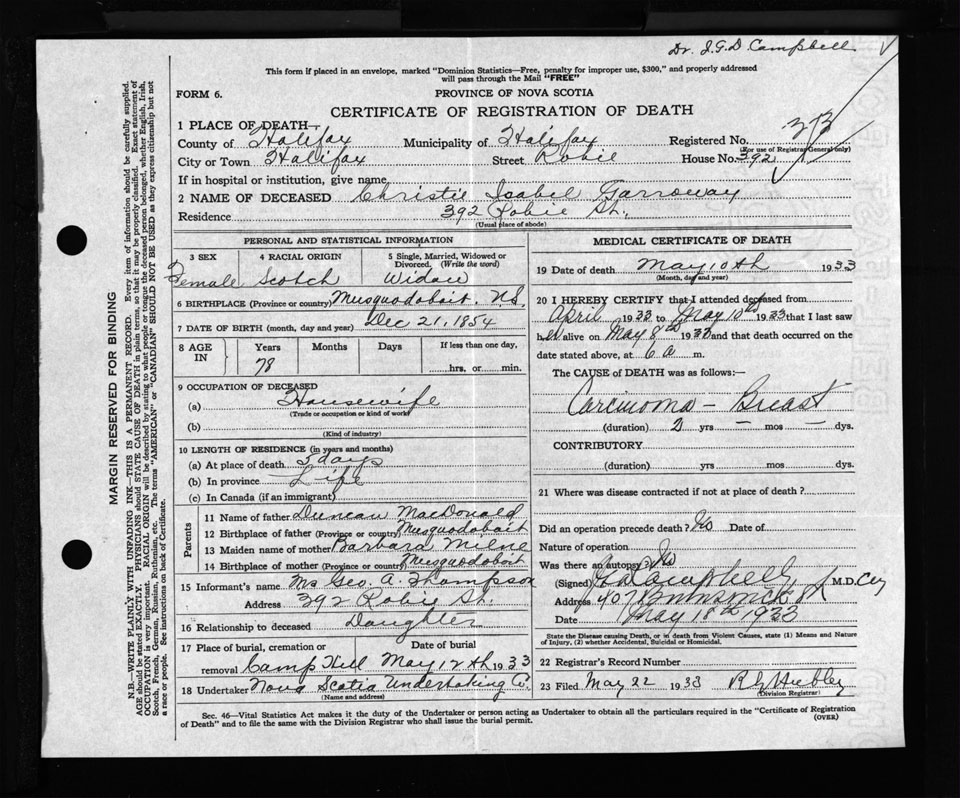 Dr. J.G.D. Campbell
This form if placed in an envelope, marked "Dominion Statistics—Free, penalty for improper use, $300," and properly addressed
will pass through the Mail "FREE"
FORM 6. PROVINCE OF NOVA SCOTIA
CERTIFICATE OF REGISTRATION OF DEATH
1 PLACE OF DEATH—
County of Halifax Municipality of Halifax Registered No.
(For use of Registrar General only)
City or Town Halifax Street Robie House No. 392
If in hospital or institution, give name
2 NAME OF DECEASED Christie Isabel Garroway
Residence 392 Robie St.
(Usual place of abode)
PERSONAL AND STATISTICAL INFORMATION
3 SEX 4 RACIAL ORIGIN 5 Single, Married, Widowed or
Divorced. (Write the word)
Female Scotch Widow
6 BIRTHPLACE (Province or country) Musquodoboit, N.S.
7 DATE OF BIRTH (month, day and year) Dec 21, 1854
8 AGE IN Years Months Days If less than one day,
78 hrs. or min.
9 OCCUPATION OF DECEASED
(a) Housewife
(Trade or occupation or kind of work)
(b)
(Kind of industry)
10 LENGTH OF RESIDENCE (in years and months)
(a) At place of death 5 days
(b) In province Life
(c) In Canada (if an immigrant)
Parents
11 Name of father Duncan MacDonald
12 Birthplace of father (Province or country) Musquodoboit
13 Maiden name of mother Barbara Milne
14 Birthplace of mother (Province or country) Musquodoboit
15 Informant's name Mrs Geo. A. Thompson
Address 392 Robie St.
16 Relationship to deceased Daughter
17 Place of burial, cremation or Date of burial
removal Camp Hill May 12th 1933
18 Undertaker Nova Scotia Undertaking Co.
(Name and address)
MEDICAL CERTIFICATE OF DEATH
19 Date of death May 10th 1933
(Month, day and year)
20 I HEREBY CERTIFY that I attended deceased from
April 1933 to May 10th 1933 that I last saw
her alive on May 8th 1933 and that death occurred on the
date stated above, at 6 a m.
The CAUSE of DEATH was as follows:—
Carcinoma — Breast
(duration) 2 yrs — mos — dys.
CONTRIBUTORY
(duration) yrs. mos. dys.
21 Where was disease contracted if not at place of death?
Did an operation precede death? No Date of
Nature of operation
Was there an autopsy? No
(Signed) Campbell, M.D.
Address 407 Brunswick St
Date May 18th 1933
State the Disease causing Death, or in death from Violent Causes, state (1) Means and Nature
of Injury, (2) whether Accidental, Suicidal or Homicidal.
22 Registrar's Record Number
23 Filed May 22 1933
(Division Registrar)
Sec. 46—Vital Statistics Act makes it the duty of the Undertaker or person acting as Undertaker to obtain all the particulars required in the "Certificate of Registration
of Death" and to file the same with the Division Registrar who shall issue the burial permit.
(OVER)
MARGIN RESERVED FOR BINDING
N.B.—WRITE PLAINLY WITH UNFADING INK—THIS IS A PERMANENT RECORD. Every item of information should be carefully supplied.
AGE should be stated EXACTLY. PHYSICIANS should STATE CAUSE OF DEATH in plain terms, so that it may be properly classified. Exact statement of
OCCUPATION is very important. RACIAL ORIGIN will be described by stating to what people or tongue the deceased person belonged, whether English, Irish,
Scotch, French, German, Russian, Ruthenian, etc. The terms "AMERICAN" or "CANADIAN" SHOULD NOT BE USED as they express citizenship but not
a race or people. See instructions on back of Certificate.